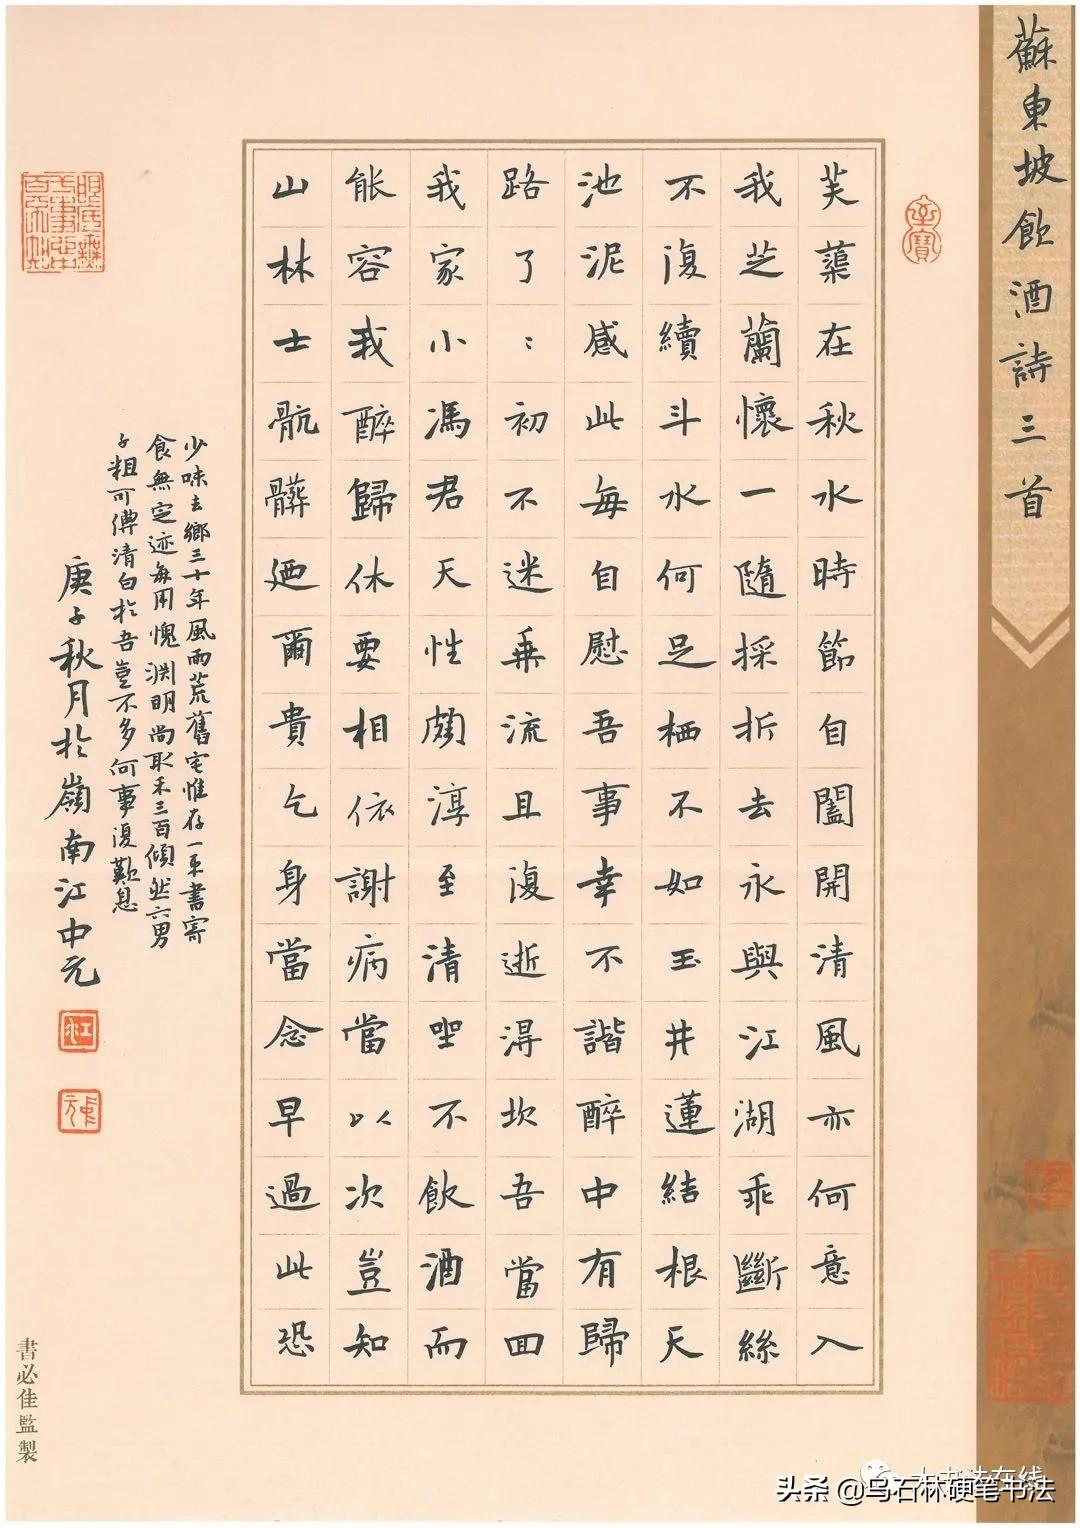 蘇東坡飲酒詩三首
芙蕖在秋水時節自闔開清風亦何意入
我芝蘭懷一隨採折去永與江湖乖斷絲
不復續斗水何足栖不如玉井蓮結根天
池泥感此每自慰吾事幸不諧醉中有歸
路了：初不迷乘流且復逝得坎吾當回
我家小馮君天性頗淳至清坐不飲酒而
能容我醉歸休要相依謝病當以次豈知
山林士骯髒迺爾貴乞身當念早過此恐
少味去鄉三十年風雨荒舊宅惟存一束書寄
食無定迹每用愧淵明尚取禾三百傾然六男
子粗可傳清白於吾豈不多何事復歎息
庚子秋月於嶺南江中元
書必佳監製
头条 @乌石林硬笔书法